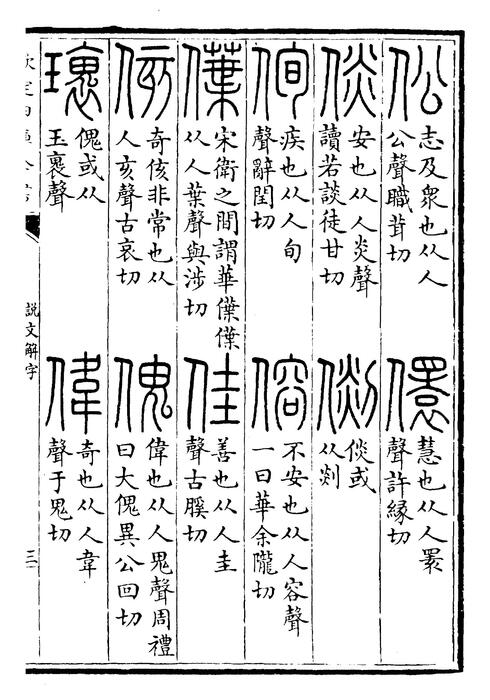 伀
志及衆也从人
公聲職茸切
儇
慧也从人瞏
聲許縁切
倓
安也从人炎聲
讀若談徒甘切
倓或
从剡
侚
疾也从人旬
聲辭閏切
傛
不安也从人容聲
一曰華余隴切
僷
宋衛之間謂華僷僷
从人葉聲與涉切
佳
善也从人圭
聲古膎切
侅
奇侅非常也从
人亥聲古哀切
傀
偉也从人鬼聲周禮
曰大傀異公回切
瓌
傀或从
玉褱聲
偉
奇也从人韋
聲于鬼切
欽定四庫全書
説文解字
三